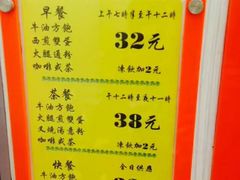 早餐
上午七時半至午十二時
牛油方飽
西煎雙蛋
火腿通粉
咖啡或茶
32元
凍飲加2元
茶餐
午十二時至夜十一時
牛油方飽
西煎雙蛋
叉燒湯意粉
咖啡或茶
38元
凍飲加2元
快餐
全日供應
牛油方飽